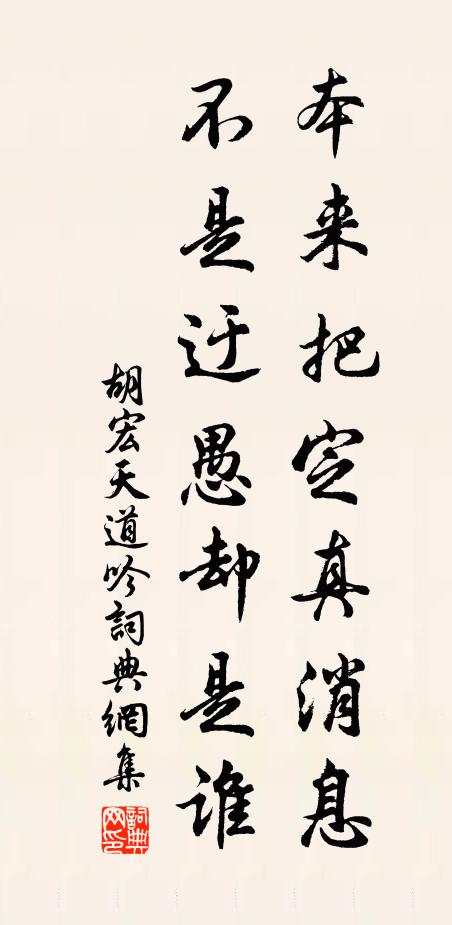 本来把定真消息
不是迂愚却是谁
胡宏天道吟詞典網集
詞典
网印